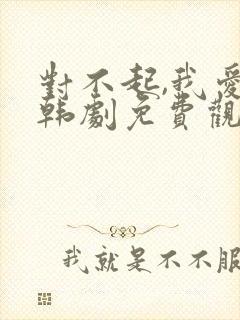 對不起,我愛
韩劇免費觀
我就是不不服